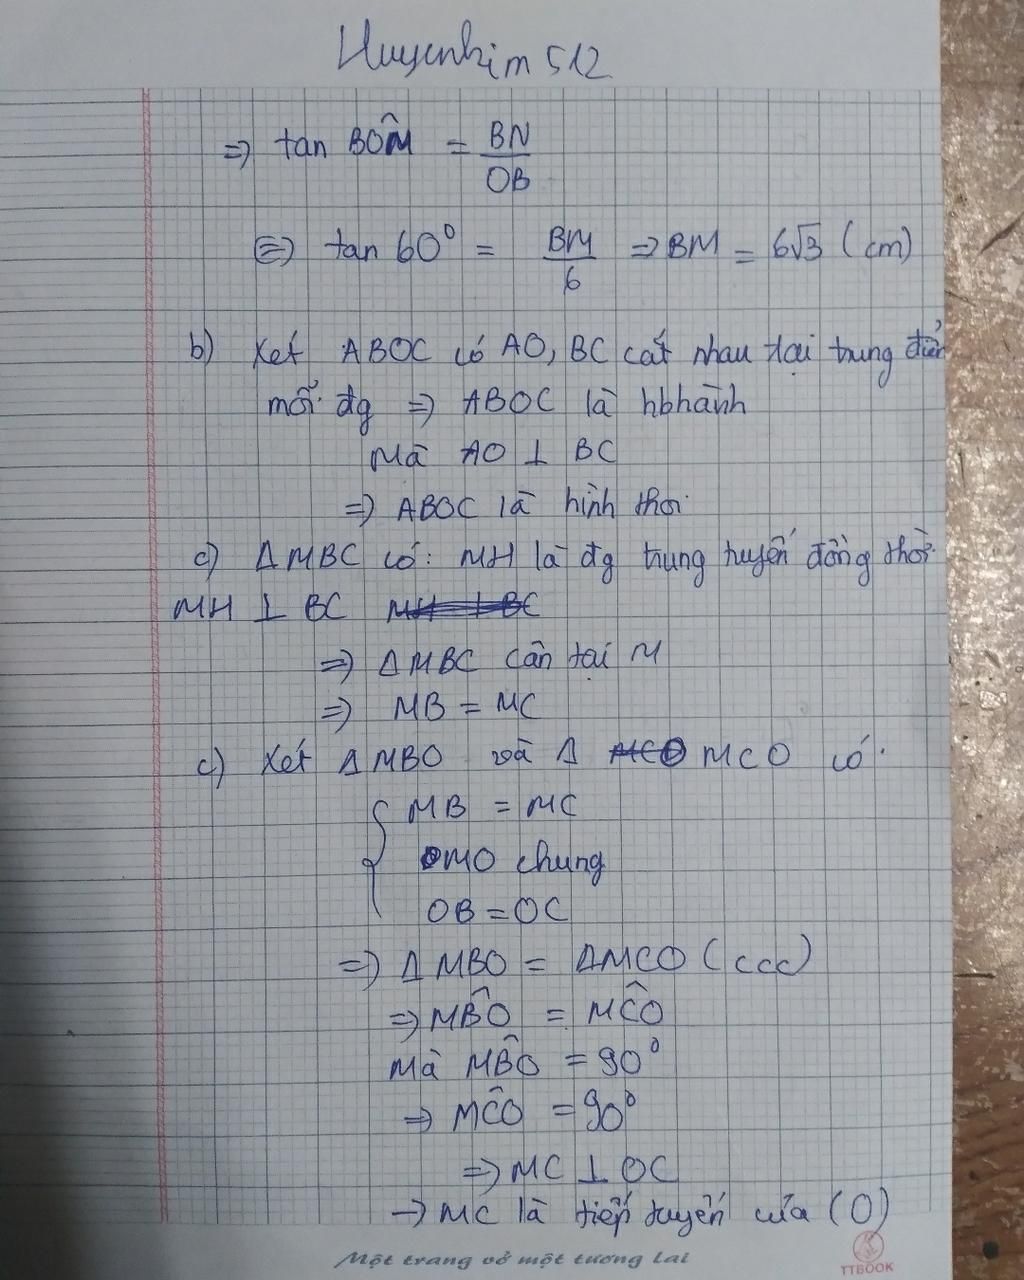 Huyenkim512
=> tan BÔM = BN/OB
<=> tan 60° = BM/6 => BM = 6√3 (cm)
b) Xét ABOC có AO, BC cắt nhau tại trung điểm
mỗi đg => ABOC là hbhành
Mà AO ⊥ BC
=> ABOC là hình thoi
c) ΔMBC có: MH là đg trung tuyến đồng thời
MH ⊥ BC
=> ΔMBC cân tại M
=> MB = MC
c) Xét ΔMBO và Δ MCO có:
{ MB = MC
MO chung
OB = OC
=> ΔMBO = ΔMCO (ccc)
=> MB̂O = MĈO
Mà MB̂O = 90°
=> MĈO = 90°
=> MC ⊥ OC
-> MC là tiếp tuyến của (O)
Một trang vở một tương lai
TTBOOK